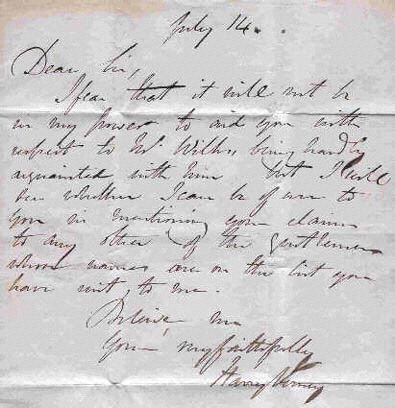 July 14.
Dear Sir,
I fear that it will not be
in my power to aid you with
respect to Mr Wilks, being hardly
acquainted with him but I will
see whether I can be of use to
you in mentioning your claims
to any other of the Gentlemen
whose names are on the list you
have sent to me.
Believe me
Your very faithfully
Harry Verney